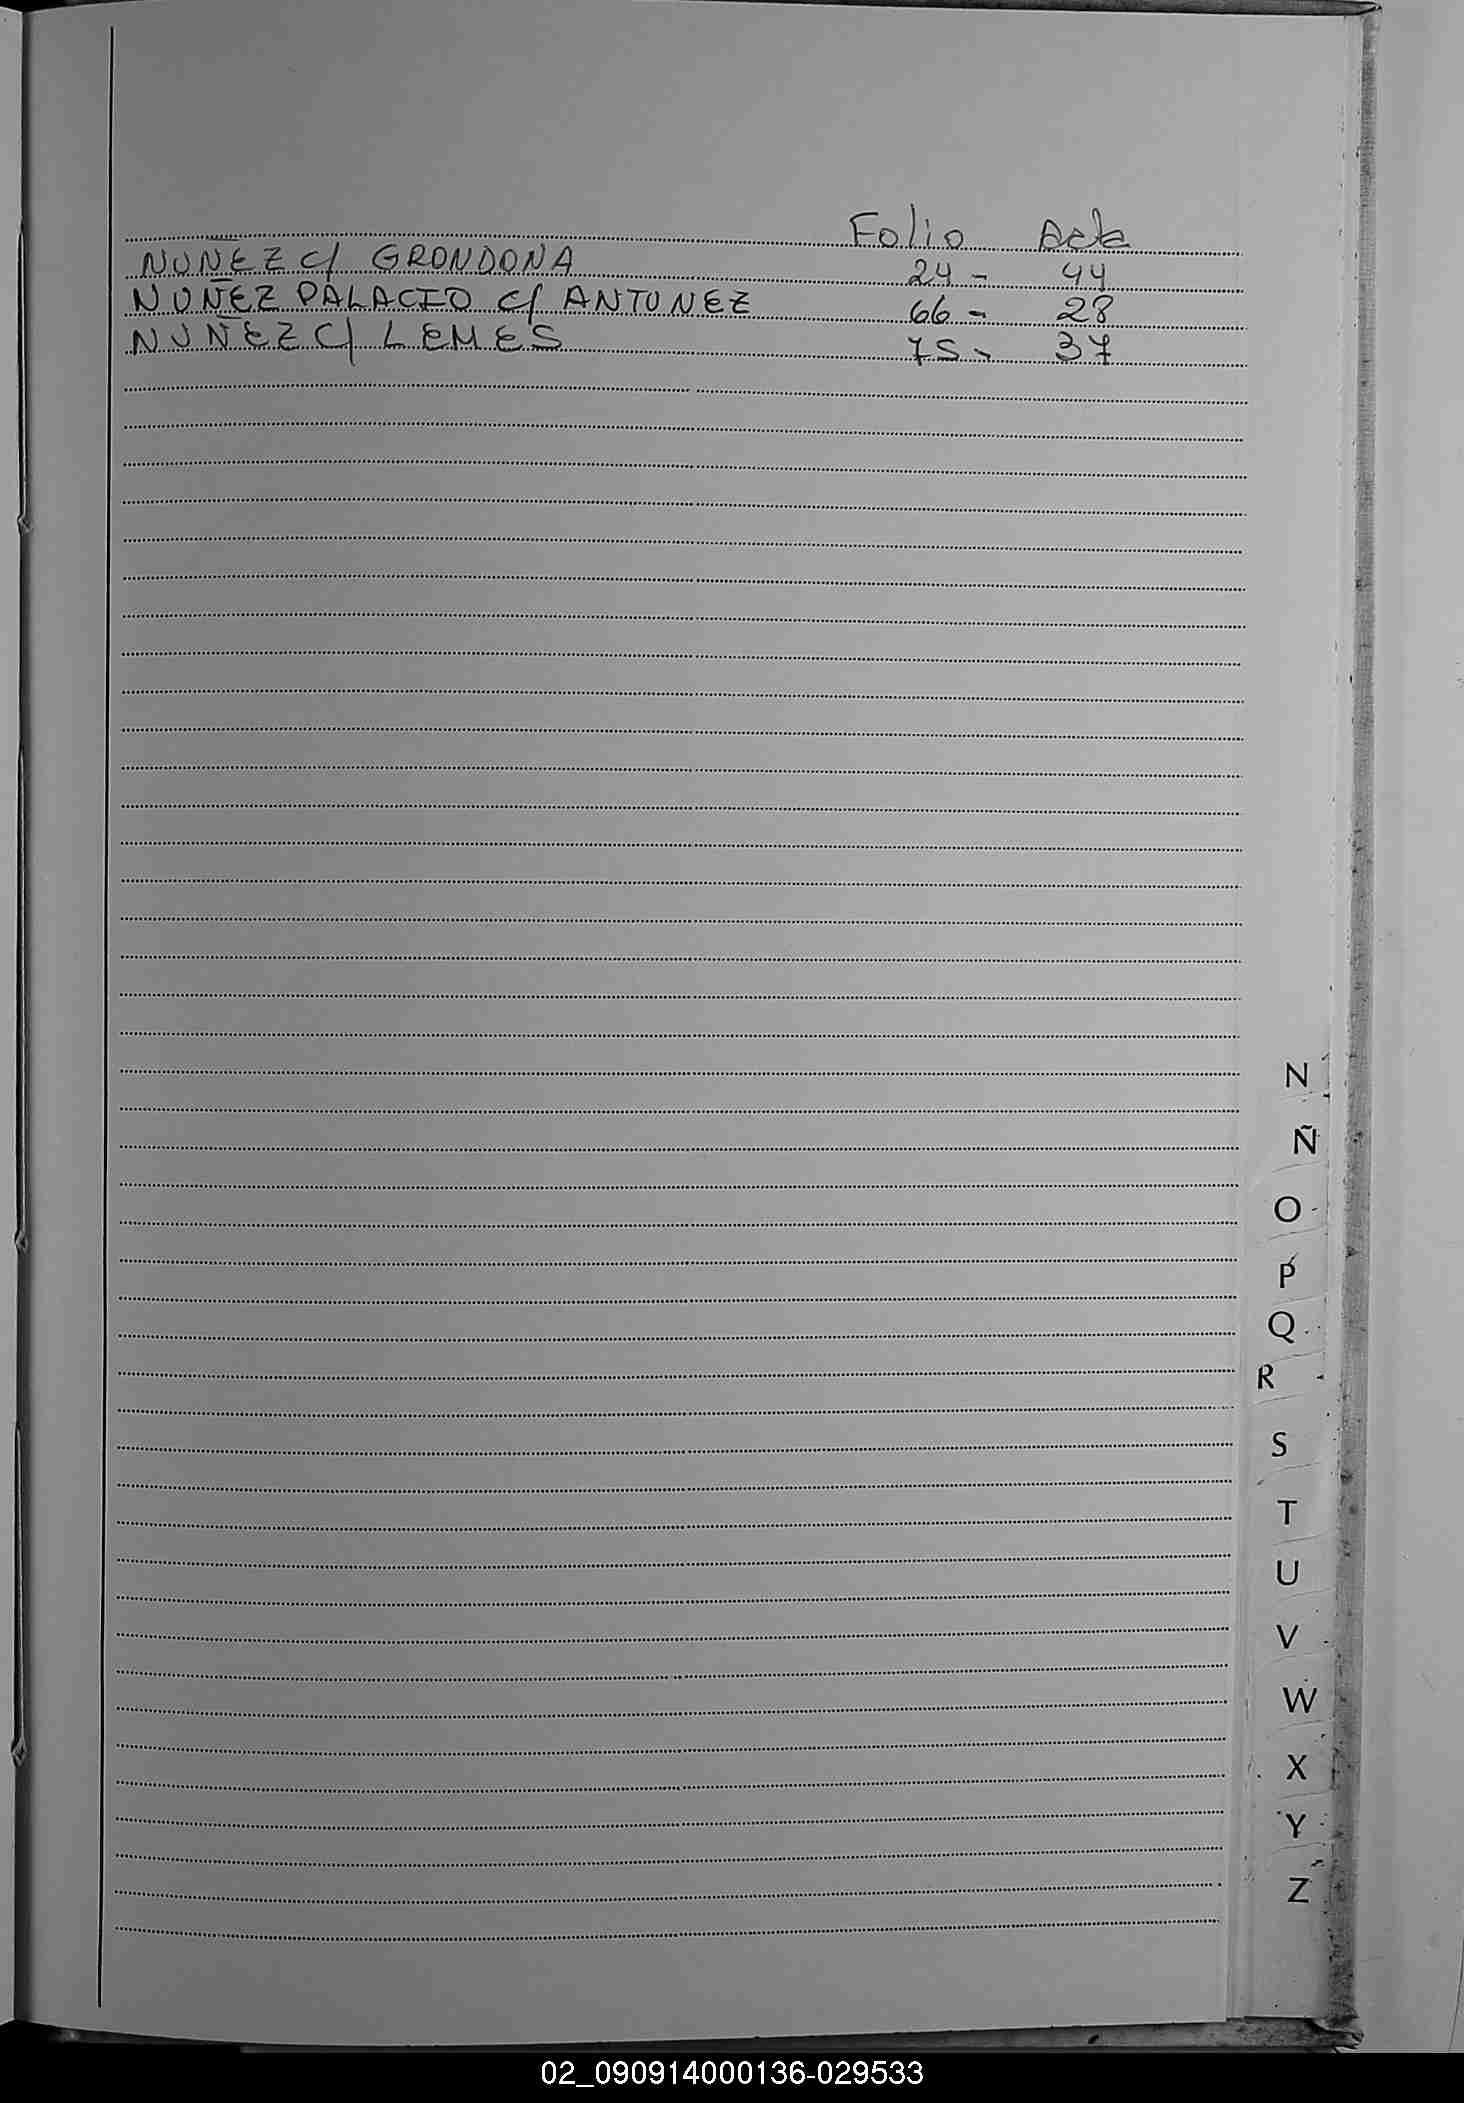 Folio Acta
NUÑEZ c/ GRONDONA 24 - 44
NUÑEZ PALACIO c/ ANTUNEZ 66 - 28
NUÑEZ C/ LEMES 75 - 37
N
Ñ
O
P
Q
R
S
T
U
V
W
X
Y
Z
02_090914000136-029533